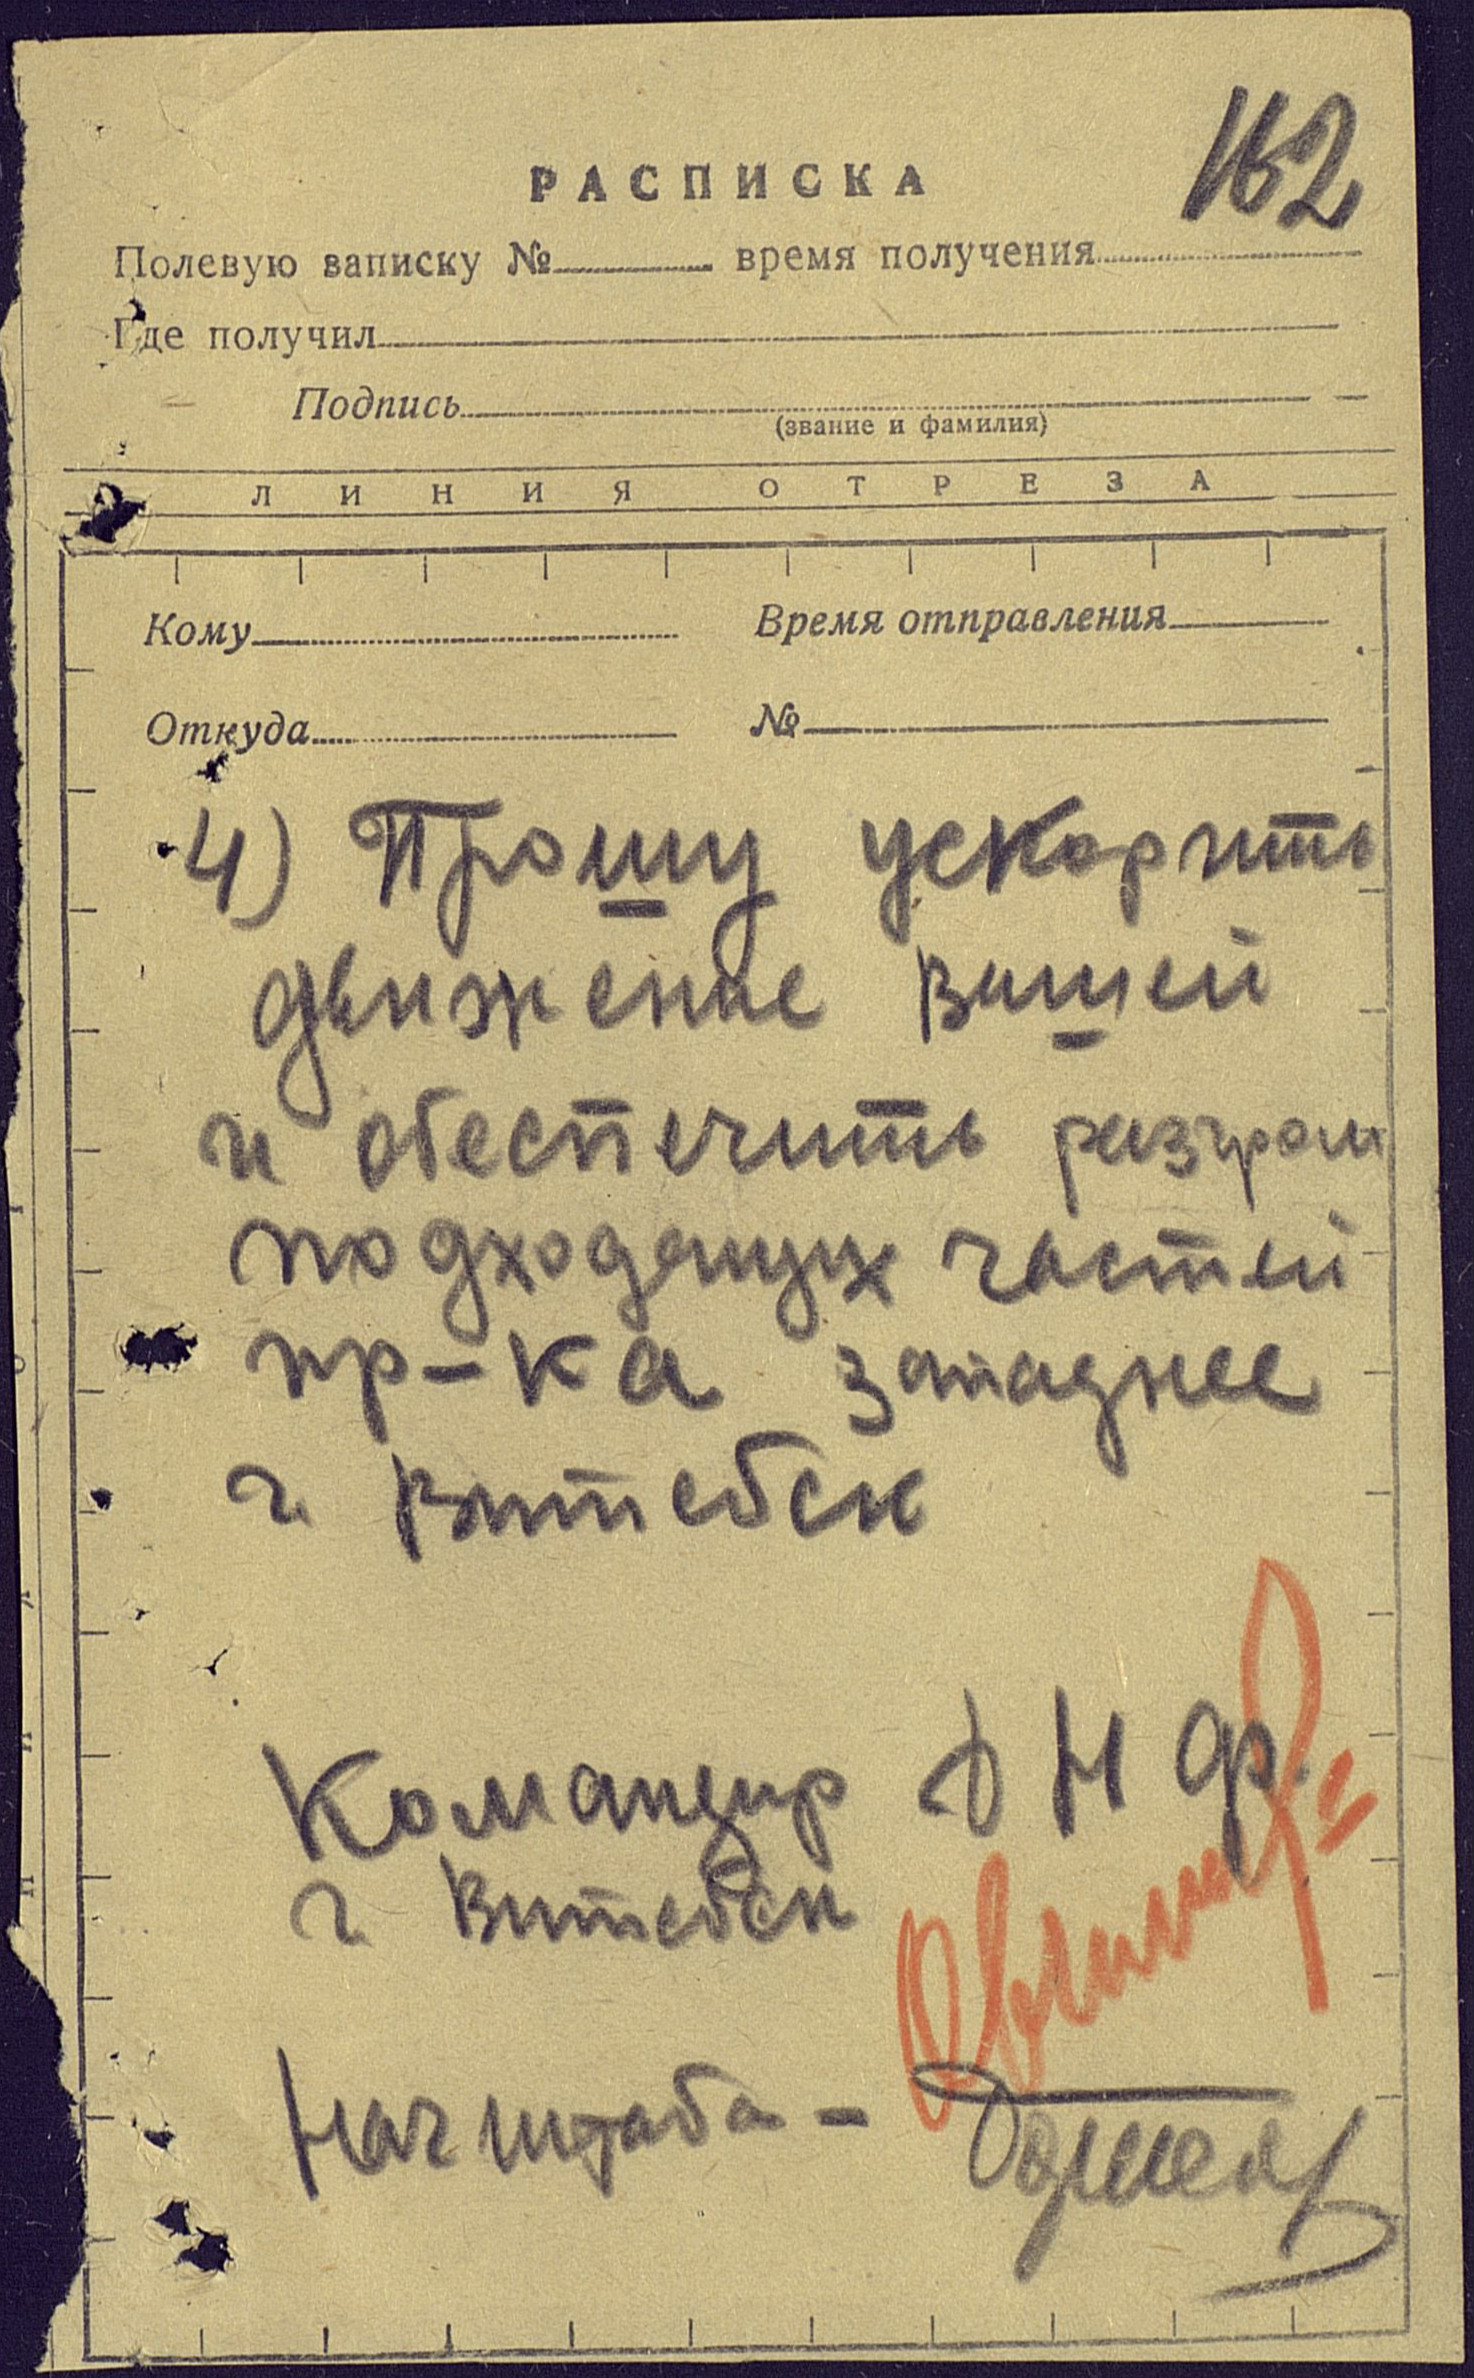 162
РАСПИСКА
Полевую записку № время получения
Где получил
Подпись
(звание и фамилия)
ЛИНИЯ ОТРЕЗА
Кому Время отправления
Откуда №
4) Прошу ускорить
движение вашей
и обеспечить разгром
подходящих частей
пр-ка западнее
г. Витебск
Командир
г. Витебск
Нач штаба –